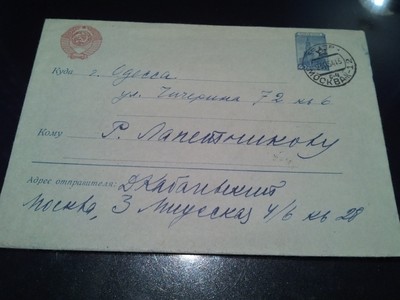 Куда г. Одесса
ул. Чичерина 72 кв 6
Кому Р. Лапестникову
Адрес отправителя: Д Кабалевский
Москва, 3 Миусская 4/6 кв 28
МОСКВА